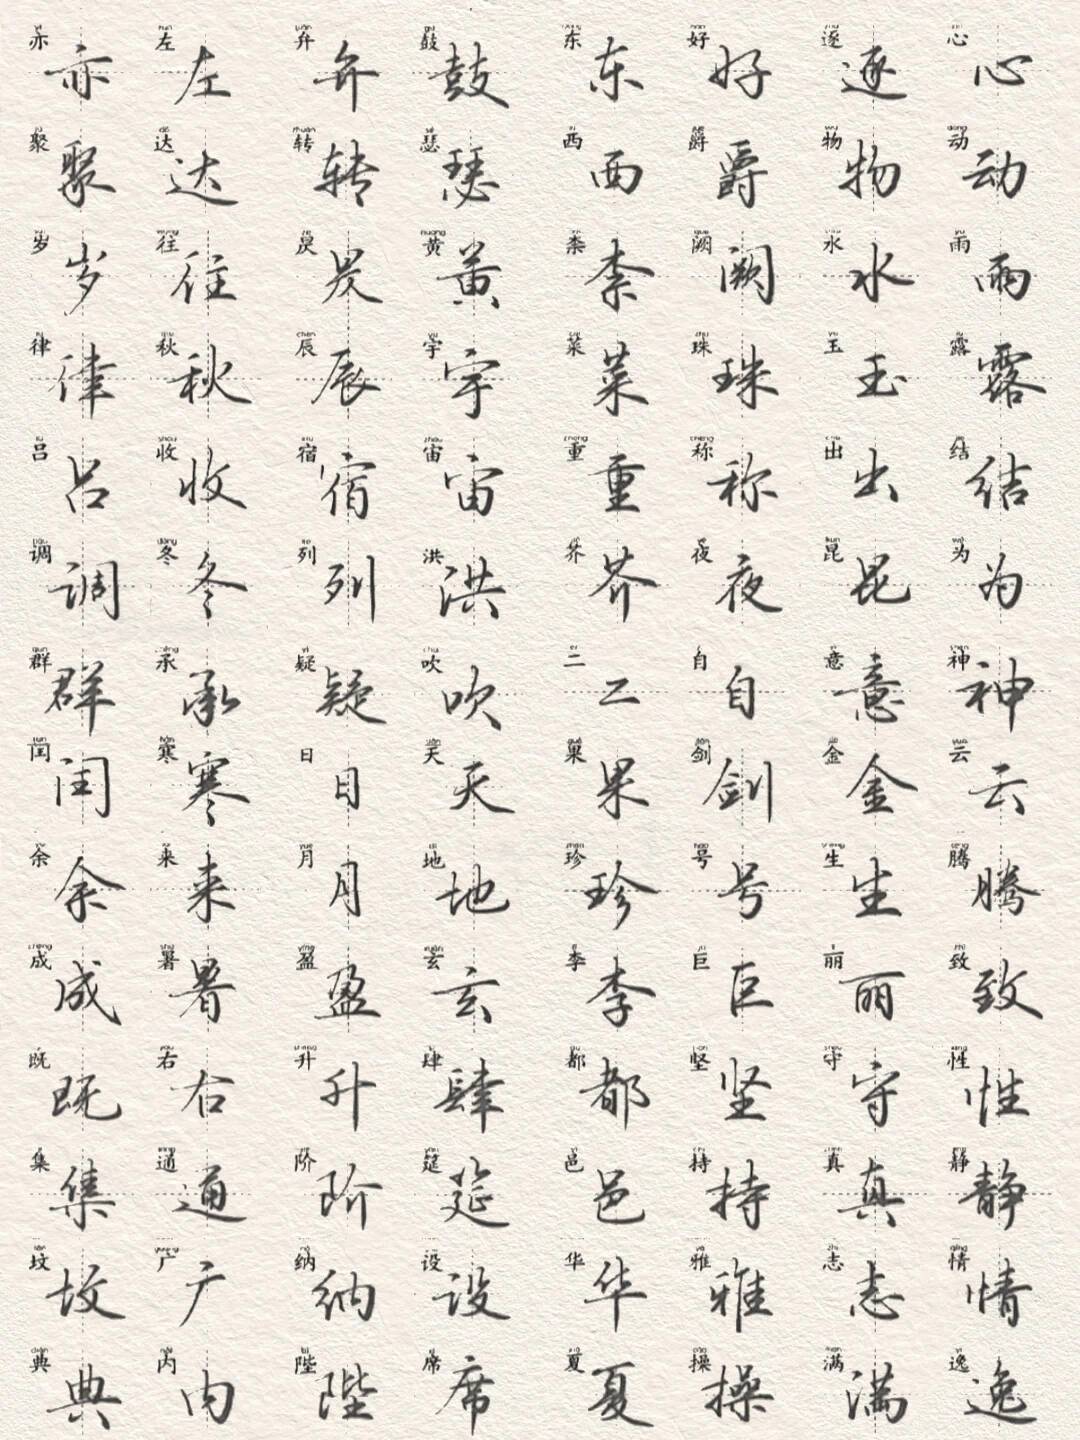 心动雨露结为神云腾致性静情逸
逐物水玉出昆意金生丽守真志满
好爵阙珠称夜自剑号巨坚持雅操
东西柰菜重芥二果珍李都邑华夏
鼓瑟黄宇宙洪吹天地玄肆筵设席
弁转昃辰宿列疑日月盈升阶纳陛
左达往秋收冬承寒来暑右通广内
亦聚岁律吕调群闰余成既集坟典